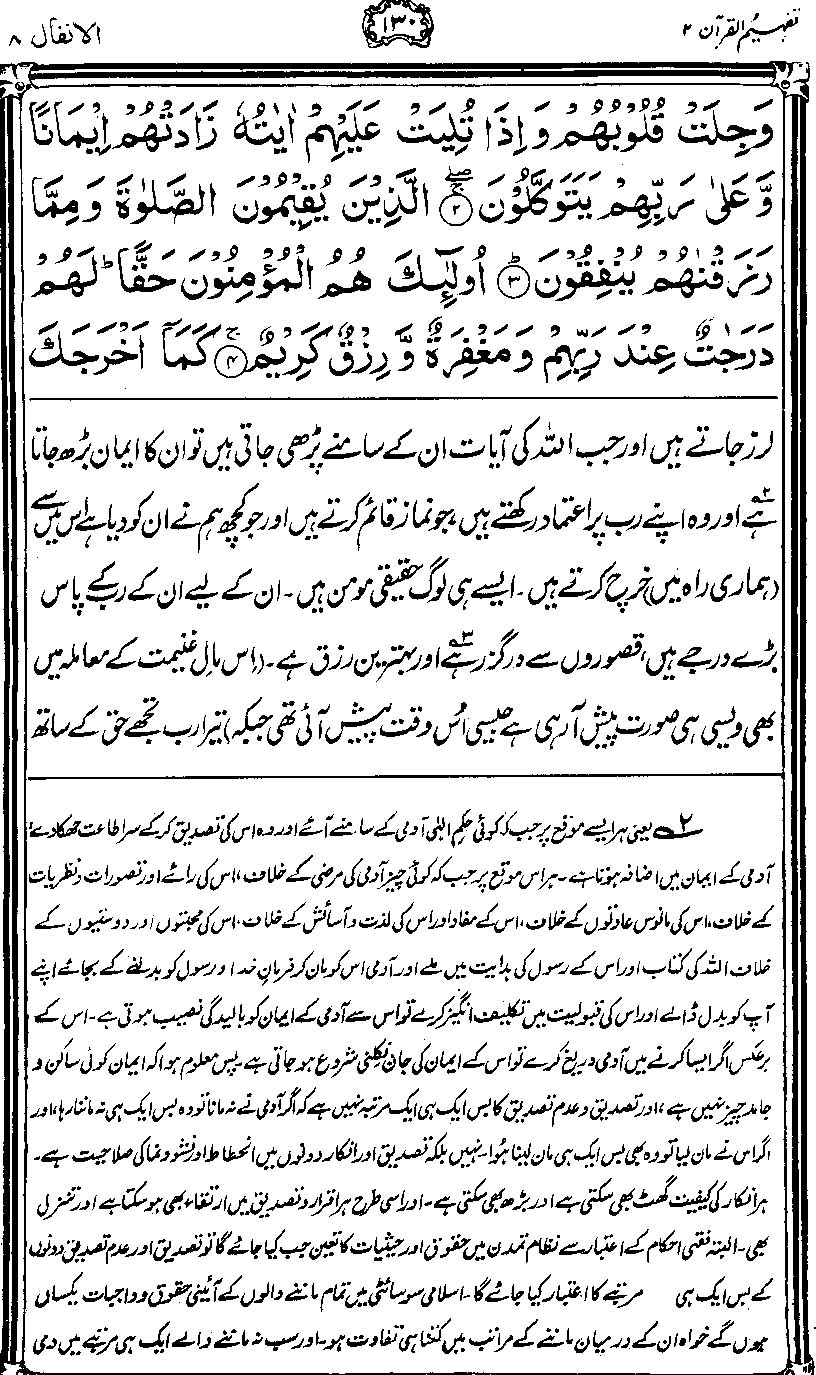 تفہیم القرآن ۲
۱۳۰
الانفال ۸
وَجِلَتْ قُلُوْبُهُمْ وَاِذَا تُلِيَتْ عَلَيْهِمْ اٰيٰتُهٗ زَادَتْهُمْ اِيْمَانًا
وَّعَلٰى رَبِّهِمْ يَتَوَكَّلُوْنَ ۲ الَّذِيْنَ يُقِيْمُوْنَ الصَّلٰوةَ وَمِمَّا
رَزَقْنٰهُمْ يُنْفِقُوْنَ ۳ اُولٰٓئِكَ هُمُ الْمُؤْمِنُوْنَ حَقًّا ؕ لَهُمْ
دَرَجٰتٌ عِنْدَ رَبِّهِمْ وَمَغْفِرَةٌ وَّرِزْقٌ كَرِيْمٌ ۴ كَمَآ اَخْرَجَكَ
لرز جاتے ہیں اور جب اللہ کی آیات ان کے سامنے پڑھی جاتی ہیں تو ان کا ایمان بڑھ جاتا
ہے۲ اور وہ اپنے رب پر اعتماد رکھتے ہیں، جو نماز قائم کرتے ہیں اور جو کچھ ہم نے ان کو دیا ہے اس میں سے
(ہماری راہ میں) خرچ کرتے ہیں۔ ایسے ہی لوگ حقیقی مومن ہیں۔ ان کے لیے ان کے رب کے پاس
بڑے درجے ہیں، قصوروں سے درگزر ہے۳ اور بہترین رزق ہے۔ (اس مالِ غنیمت کے معاملہ میں
بھی ویسی ہی صورت پیش آ رہی ہے جیسی اُس وقت پیش آئی تھی جبکہ) تیرا رب تجھے حق کے ساتھ
۲ یعنی ہر ایسے موقع پر جب کہ کوئی حکمِ الٰہی آدمی کے سامنے آئے اور وہ اس کی تصدیق کر کے سر اطاعت جھکا دے،
آدمی کے ایمان میں اضافہ ہوتا ہے۔ ہر اس موقع پر جب کہ کوئی چیز آدمی کی مرضی کے خلاف، اس کی رائے اور تصورات و نظریات
کے خلاف، اس کی مانوس عادتوں کے خلاف، اس کے مفاد اور اس کی لذت و آسائش کے خلاف، اس کی محبتوں اور دوستیوں کے
خلاف اللہ کی کتاب اور اس کے رسول کی ہدایت میں ملے اور آدمی اس کو مان کر فرمانِ خدا و رسول کو بدلنے کے بجائے اپنے
آپ کو بدل ڈالے اور اس کی قبولیت میں تکلیف انگیز کرے تو اس سے آدمی کے ایمان کو بالیدگی نصیب ہوتی ہے۔ اس کے
برعکس اگر ایسا کرنے میں آدمی دریغ کرے تو اس کے ایمان کی جان نکلنی شروع ہو جاتی ہے۔ پس معلوم ہوا کہ ایمان کوئی ساکن و
جامد چیز نہیں ہے، اور تصدیق و عدم تصدیق کا بس ایک ہی ایک مرتبہ نہیں ہے کہ اگر آدمی نے نہ مانا تو وہ بس ایک ہی نہ ماننا رہا، اور
اگر اس نے مان لیا تو وہ بھی بس ایک ہی مان لینا ہوا۔ نہیں بلکہ تصدیق اور انکار دونوں میں انحطاط اور نشوونما کی صلاحیت ہے۔
ہر انکار کی کیفیت گھٹ بھی سکتی ہے اور بڑھ بھی سکتی ہے۔ اور اسی طرح ہر اقرار و تصدیق میں ارتقاء بھی ہو سکتا ہے اور تنزل
بھی۔ البتہ فقہی احکام کے اعتبار سے نظام تمدن میں حقوق اور حیثیات کا تعین جب کیا جائے گا تو تصدیق اور عدم تصدیق دونوں
کے بس ایک ہی مرتبے کا اعتبار کیا جائے گا۔ اسلامی سوسائٹی میں تمام ماننے والوں کے آئینی حقوق و واجبات یکساں
ہوں گے خواہ ان کے درمیان ماننے کے مراتب میں کتنا ہی تفاوت ہو۔ اور سب نہ ماننے والے ایک ہی مرتبے میں ذمی